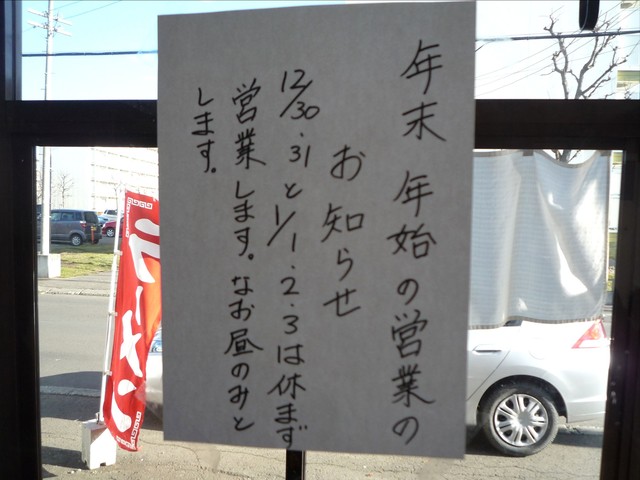 年末年始の営業の
お知らせ
12/30・31と1/1・2・3は休まず
営業します。なお昼のみと
します。
ラーメン